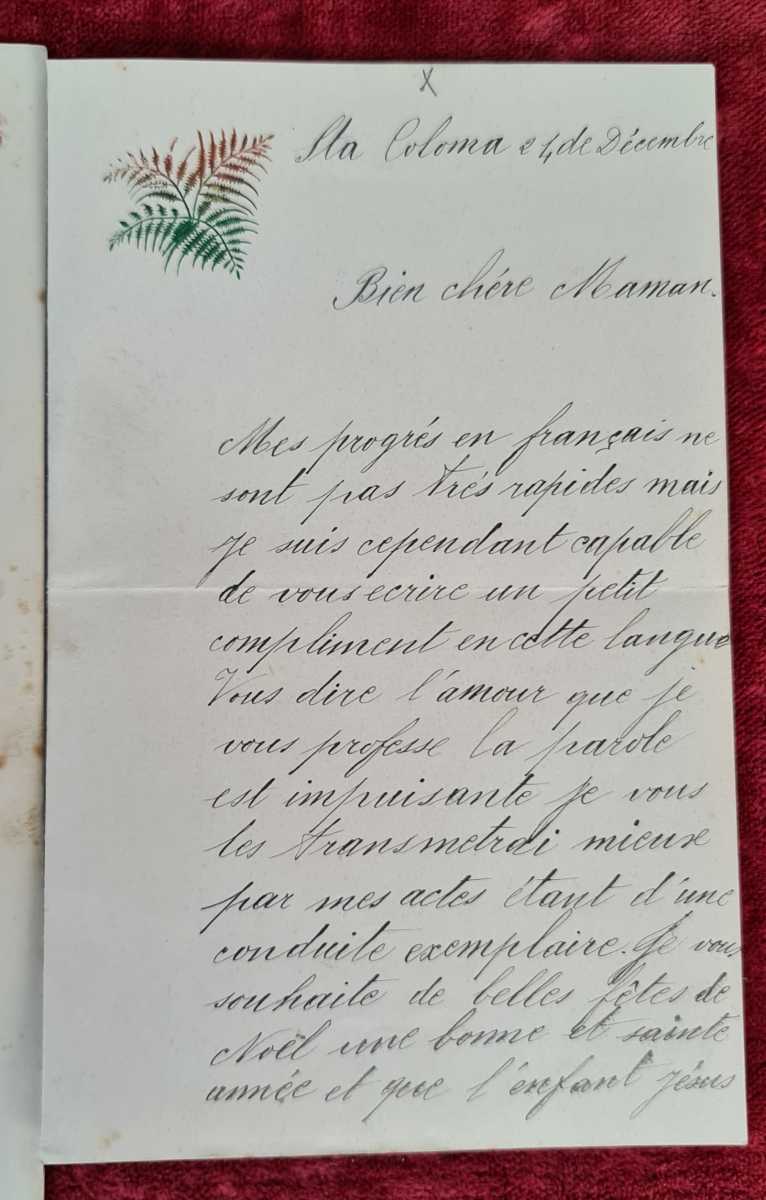 X
Sta Coloma 24 de Décembre
Bien chére Maman.
Mes progrés en français ne
sont pas trés rapides mais
je suis cependant capable
de vous ecrire un petit
compliment en cette langue
Vous dire l'amour que je
vous professe la parole
est impuisante je vous
les transmetrai mieux
par mes actes étant d'une
conduite exemplaire. Je vous
souhaite de belles fêtes de
Noël une bonne et sainte
année et que l'enfant Jésus